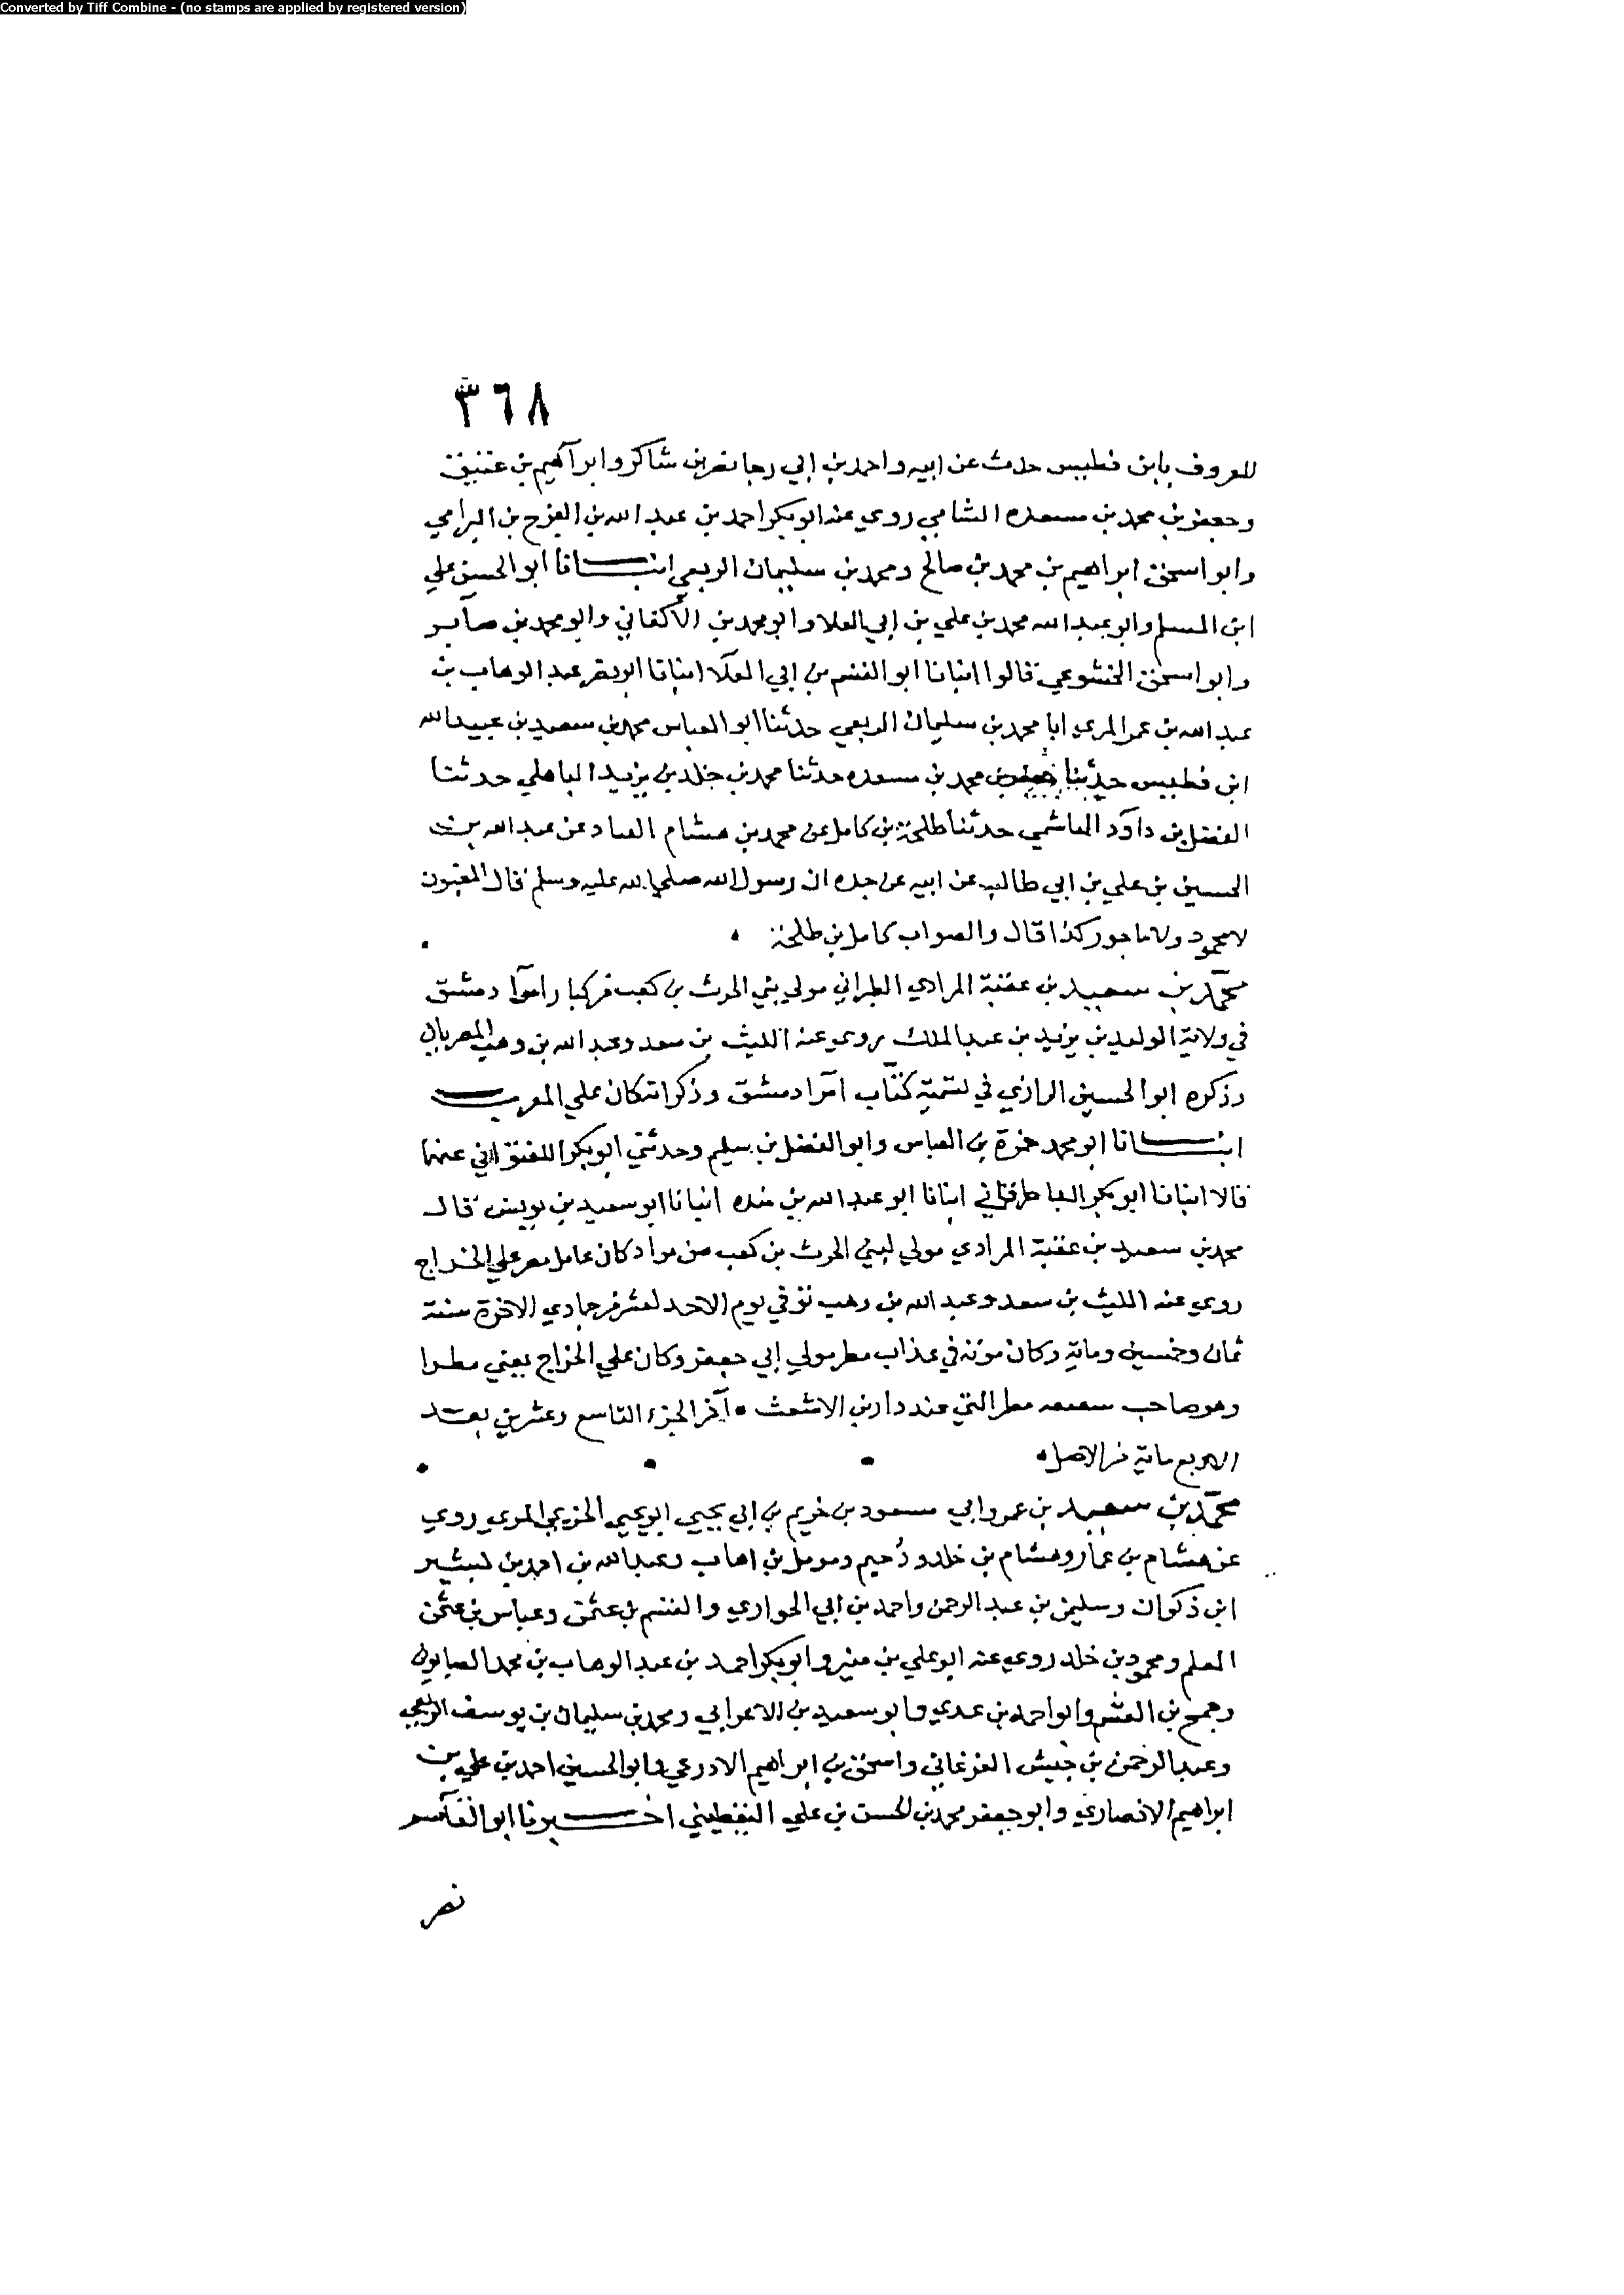 Converted by Tiff Combine - (no stamps are applied by registered version)
٣٦٨
المعروف بابن فطيس حدث عن ابيه واحمد بن ابي رجا نصر بن شاكر وابراهيم بن عتيق
وجعفر بن محمد بن مسعده الشامي روي عنه ابو بكر احمد بن عبد الله بن الفرج بن البرامي
وابو اسحق ابراهيم بن محمد بن صالح ومحمد بن سليمان الربعي انبانا ابو الحسن علي
ابن المسلم وابو عبد الله محمد بن علي بن ابي العلا وابو محمد بن الاكفاني وابو محمد بن صابر
وابو اسحق الخشوعي قالوا انبانا ابو القسم بن ابي العلا انبانا ابو نصر عبد الوهاب بن
عبد الله بن عمر المري انا محمد بن سليمان الربعي حدثنا ابو العباس محمد بن سعيد بن عبيد الله
ابن فطيس حدثنا جعفر بن محمد بن مسعده حدثنا محمد بن خلد بن يزيد الباهلي حدثنا
الفضل بن داود الهاشمي حدثنا طلحة بن كامل عن محمد بن هشام العباد عن عبد الله بن
الحسين بن علي بن ابي طالب عن ابيه عن جده ان رسول الله صلي الله عليه وسلم قال المغبون
لا محمود ولا ماجور كذا قال والصواب كامل بن طلحة
محمد بن سعيد بن عقبة المرادي الطبراني مولي بني الحرث بن كعب من كبار امرا دمشق
في ولاية الوليد بن يزيد بن عبد الملك روي عنه الليث بن سعد وعبد الله بن وهب المصريان
وذكره ابو الحسين الرازي في تسمية كتاب امرا دمشق وذكر انه كان علي المغرب
انبانا ابو محمد حمزة بن العباس وابو الفضل بن سليم وحدثني ابو بكر اللفتواني عنهما
قالا انبانا ابو بكر الباطرقاني انبانا ابو عبد الله بن منده انبانا ابو سعيد بن يونس قال
محمد بن سعيد بن عقبة المرادي مولي لبني الحرث بن كعب من مراد كان عامل مصر علي الخراج
روي عنه الليث بن سعد وعبد الله بن وهب توفي يوم الاحد لعشر من جمادي الاخرة سنة
ثمان وخمسين وماية وكان موته في عذاب مطر مولي ابي جعفر وكان علي الخراج يعني مطرا
وهو صاحب مطر التي عند دار بن الاشعث آخر الجزء التاسع وعشرين بعد
الاربع ماية من الاصل
محمد بن سعيد بن عمرو ابي مسعود بن خريم بن ابي يحيي ابو يحيي الخريمي المري روي
عن هشام بن عمار وهشام بن خلد ودحيم ومومل بن اهاب وعبد الله بن احمد بن بشير
ابن ذكوان وسليمن بن عبد الرحمن واحمد بن ابي الحواري والقسم بن عثمن وعباس بن عثمن
المعلم ومحمود بن خلد روي عنه ابو علي بن منير وابو بكر احمد بن عبد الوهاب بن محمد الصابوني
وجمح بن القسم وابو احمد بن عدي وابو سعيد بن الاعرابي ومحمد بن سليمان بن يوسف الربعي
وعبد الرحمن بن جيش الفرغاني واسحق بن ابراهيم الادرعي وابو الحسين احمد بن علي بن
ابراهيم الانصاري وابو جعفر محمد بن الحسن بن علي اليقطيني اخبرنا ابو القاسم
نصر